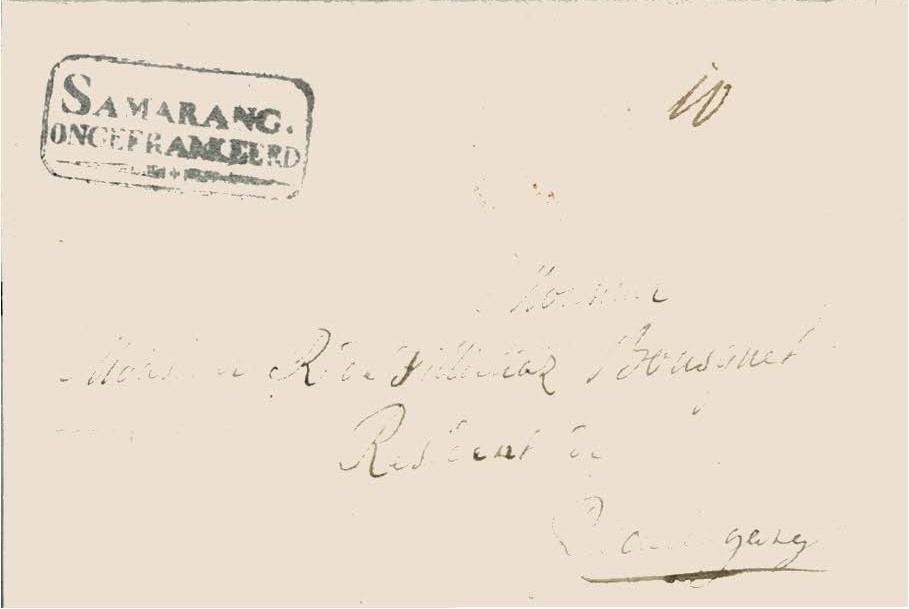 SAMARANG.
ONGEFRANKEERD
10
Monsieur
Monsieur R. de Filliettaz Bousquet
Resident de